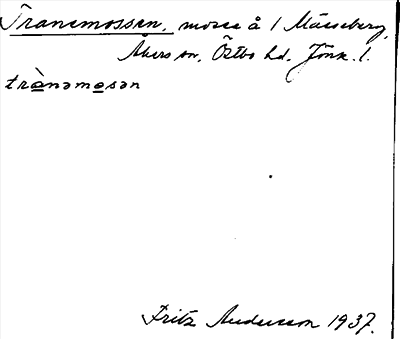 Tranemossen, mosse å 1 Måsseberg,
Åkers sn, Östbo hd. Jönk. l.
trànəmosən
Fritz Andersson 1937.